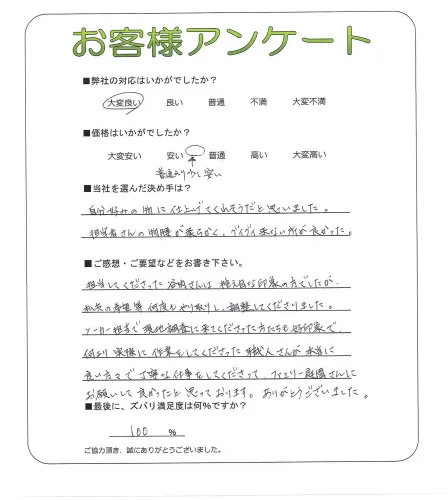 お客様アンケート
■弊社の対応はいかがでしたか？
大変良い 良い 普通 不満 大変不満
■価格はいかがでしたか？
大変安い 安い 普通 高い 大変高い
普通より少し安い
■当社を選んだ決め手は？
自分好みの物に仕上げてくれそうだと思いました。
担当者さんの物腰が柔らかく、グイグイ来ない所が良かった。
■ご感想・ご要望などをお書き下さい。
担当してくださった さんは控え目な印象の方でしたが、
私共の希望等何度もやり取りし、調整してくださりました。
メーカー担当で現地調査に来てくださった方たちも好印象で、
何より実際に作業をしてくださった職人さんが本当に
良い方々で丁寧な仕事をしてくださって、ファミリー庭園さんに
お願いして良かったと思っております。ありがとうございました。
■最後に、ズバリ満足度は何%ですか？
100 %
ご協力頂き、誠にありがとうございました。